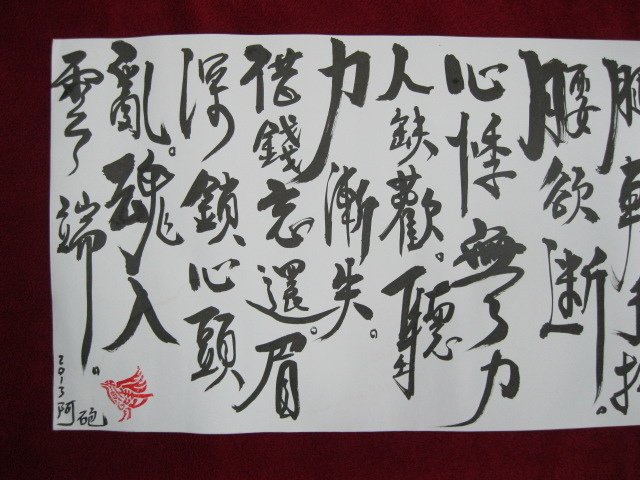 腰欲斷
心悸無力
人缺歡。聽
力漸失。
借錢忘還。眉
深鎖心頭
亂。魂入
雲端。
2013阿砲